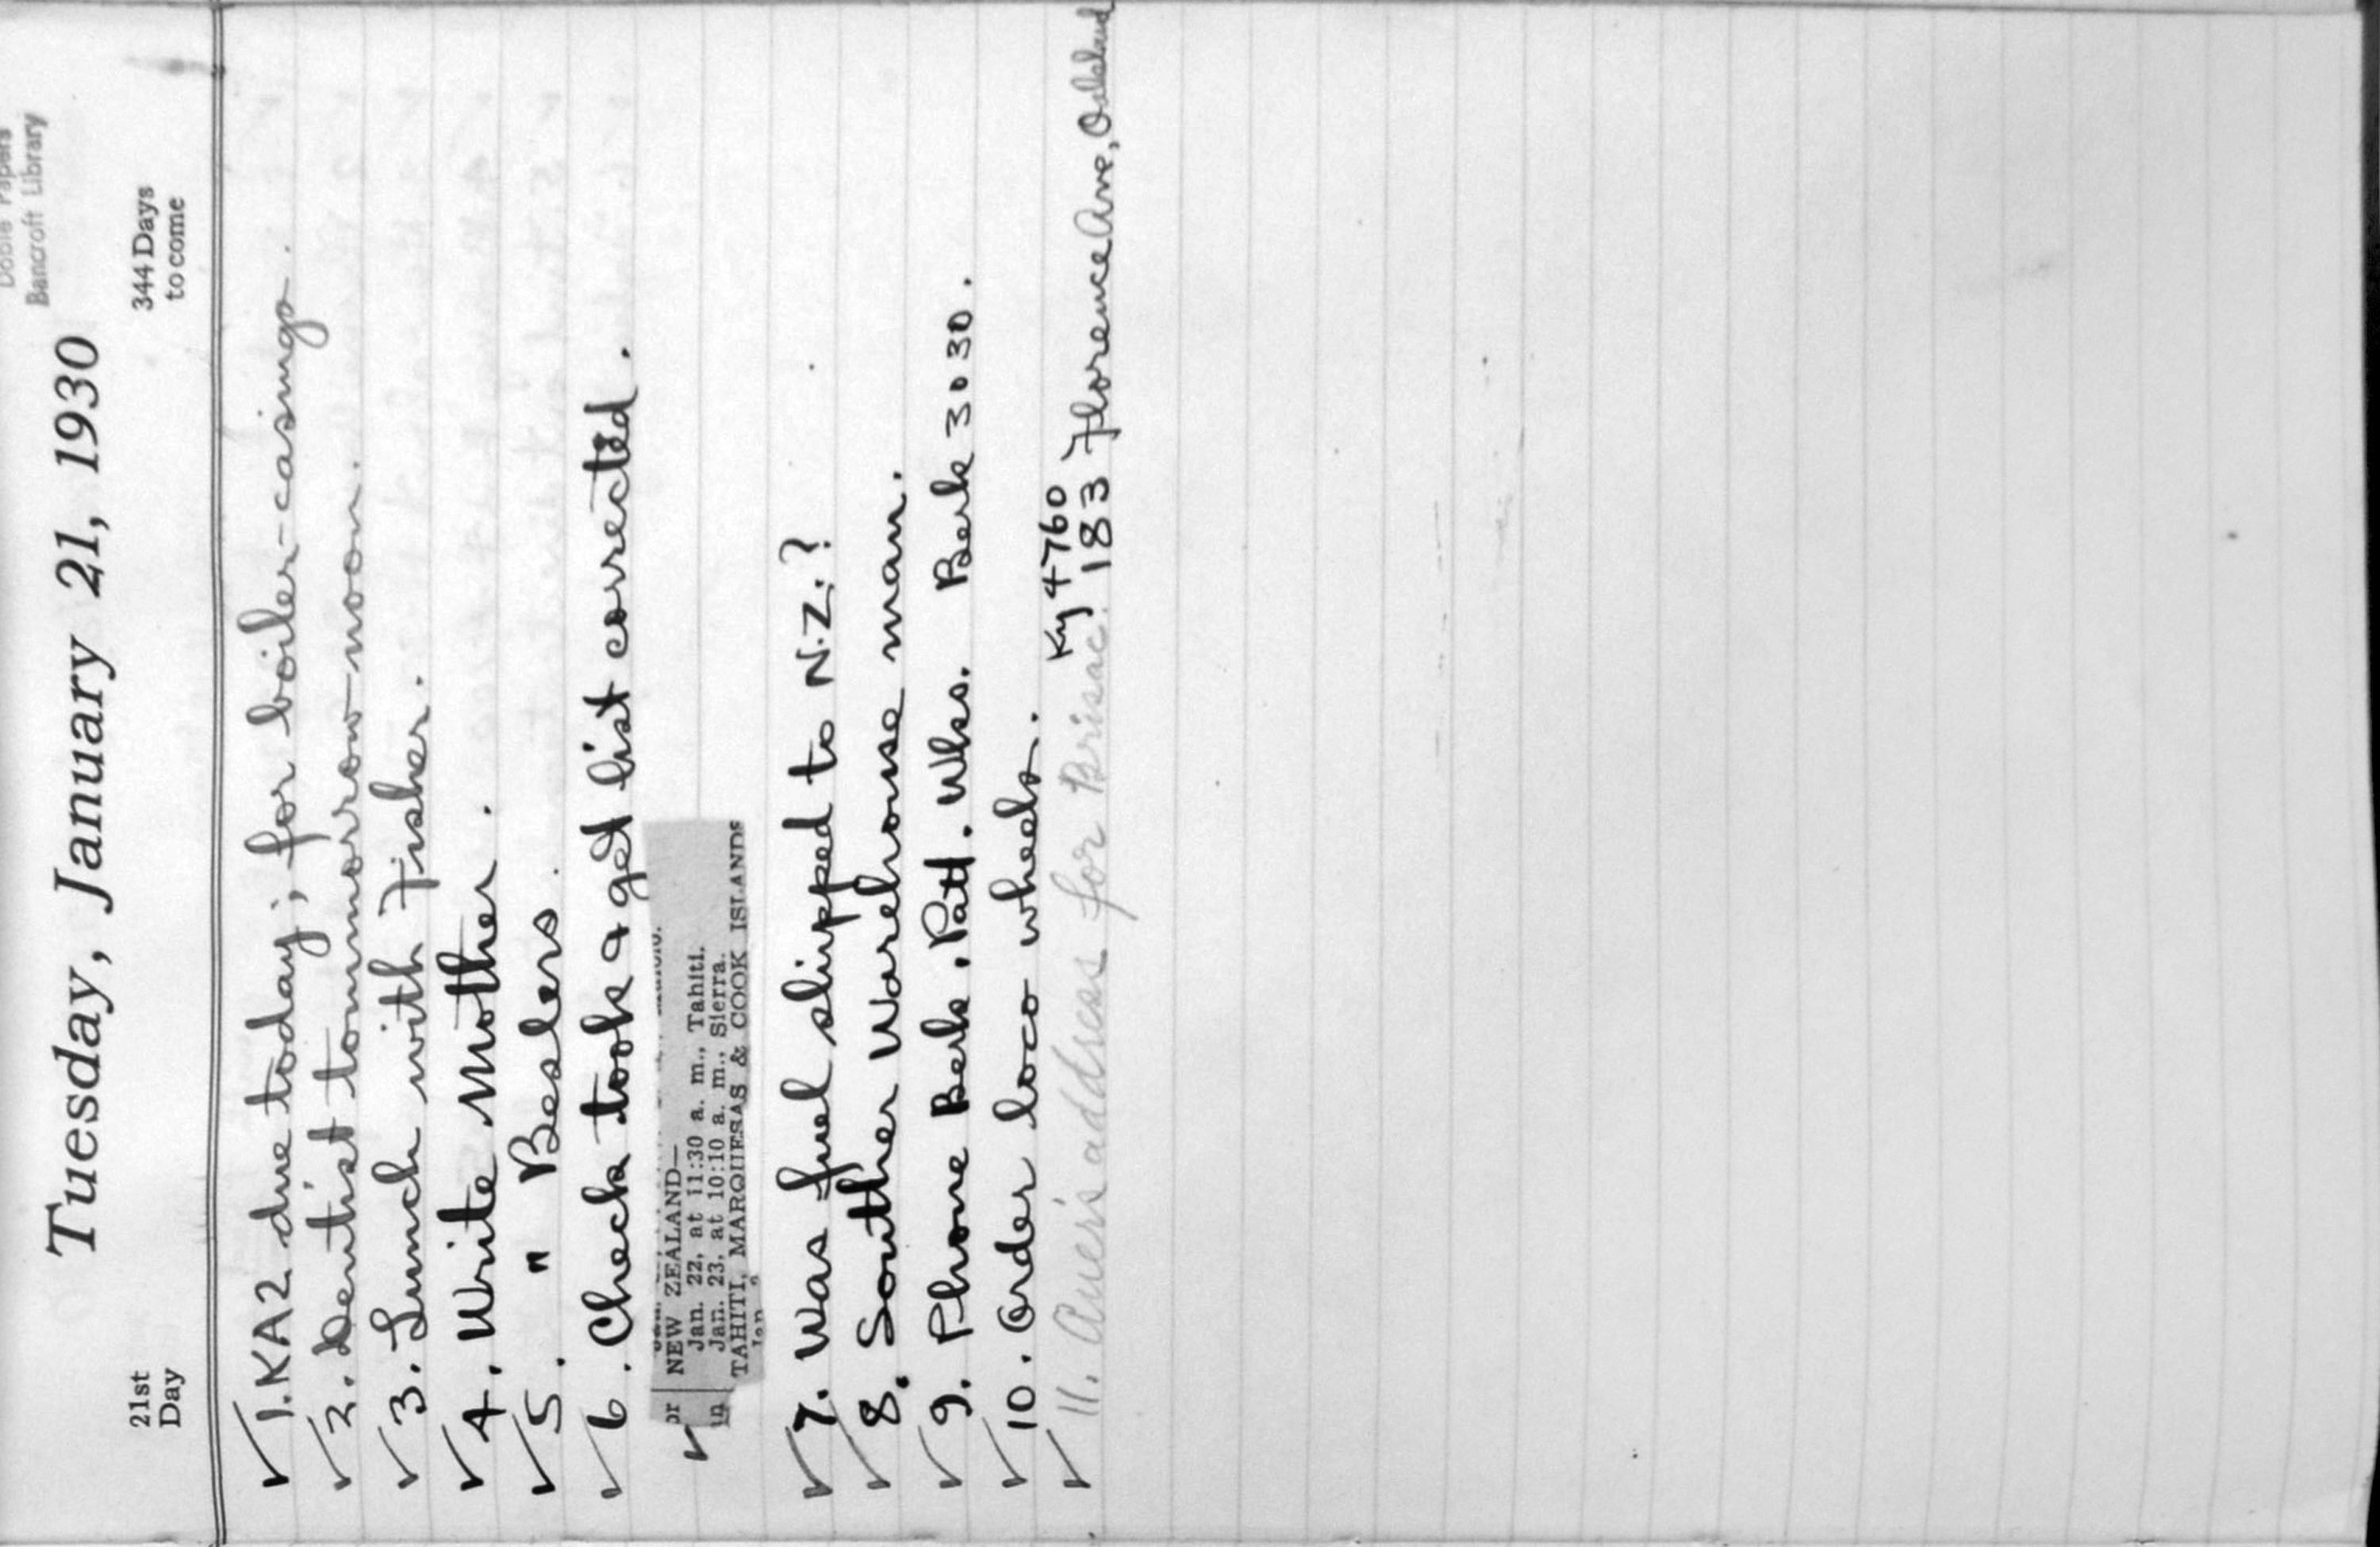 Doble Papers
Bancroft Library
Tuesday, January 21, 1930
21st
Day
344 Days
to come
✓ 1. KA2 due today; for boiler-casings.
✓ 2. Dentist tommorrow-noon.
✓ 3. Lunch with Fisher.
✓ 4. Write Mother.
✓ 5. " Beslers.
✓ 6. Check tools & get list corrected.
or NEW ZEALAND—
Jan. 22, at 11:30 a. m., Tahiti.
in Jan. 23, at 10:10 a. m., Sierra.
TAHITI, MARQUESAS & COOK ISLANDS
Jan
✓ 7. Was fuel shipped to N.Z.?
✓ 8. Souther Warehouse man.
✓ 9. Phone Berk. Patt. Wks. Berk 3030.
✓ 10. Order loco wheels.
Ky 4760
✓ 11. Auer's address for Brisac. 183 Florence Ave, Oakland